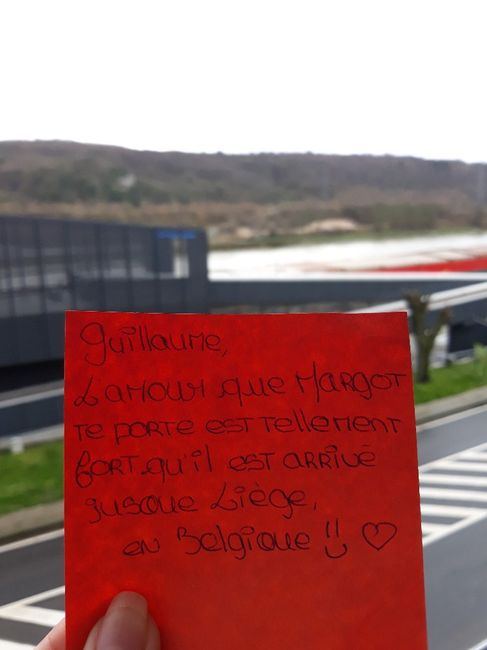 Guillaume,
L'amour que Margot
te porte est tellement
fort qu'il est arrivé
jusque Liège,
en Belgique !! ♡